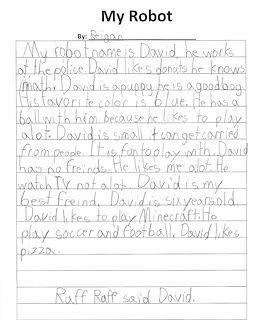 My Robot
By: Reigan
My robot name is David, he works
at the police. David likes donuts he knows
math. David is a puppy he is a good boy.
His favorite color is blue. He has a
ball with him because he likes to play
alot. David is small it can get carried
from people. It is fun to play with. David
has no freinds. He likes me alot. He
watch TV not alot. David is my
best freind. David is six years old.
David likes to play Minecraft. He
play soccer and football. David likes
pizza.
Ruff Raff said David.